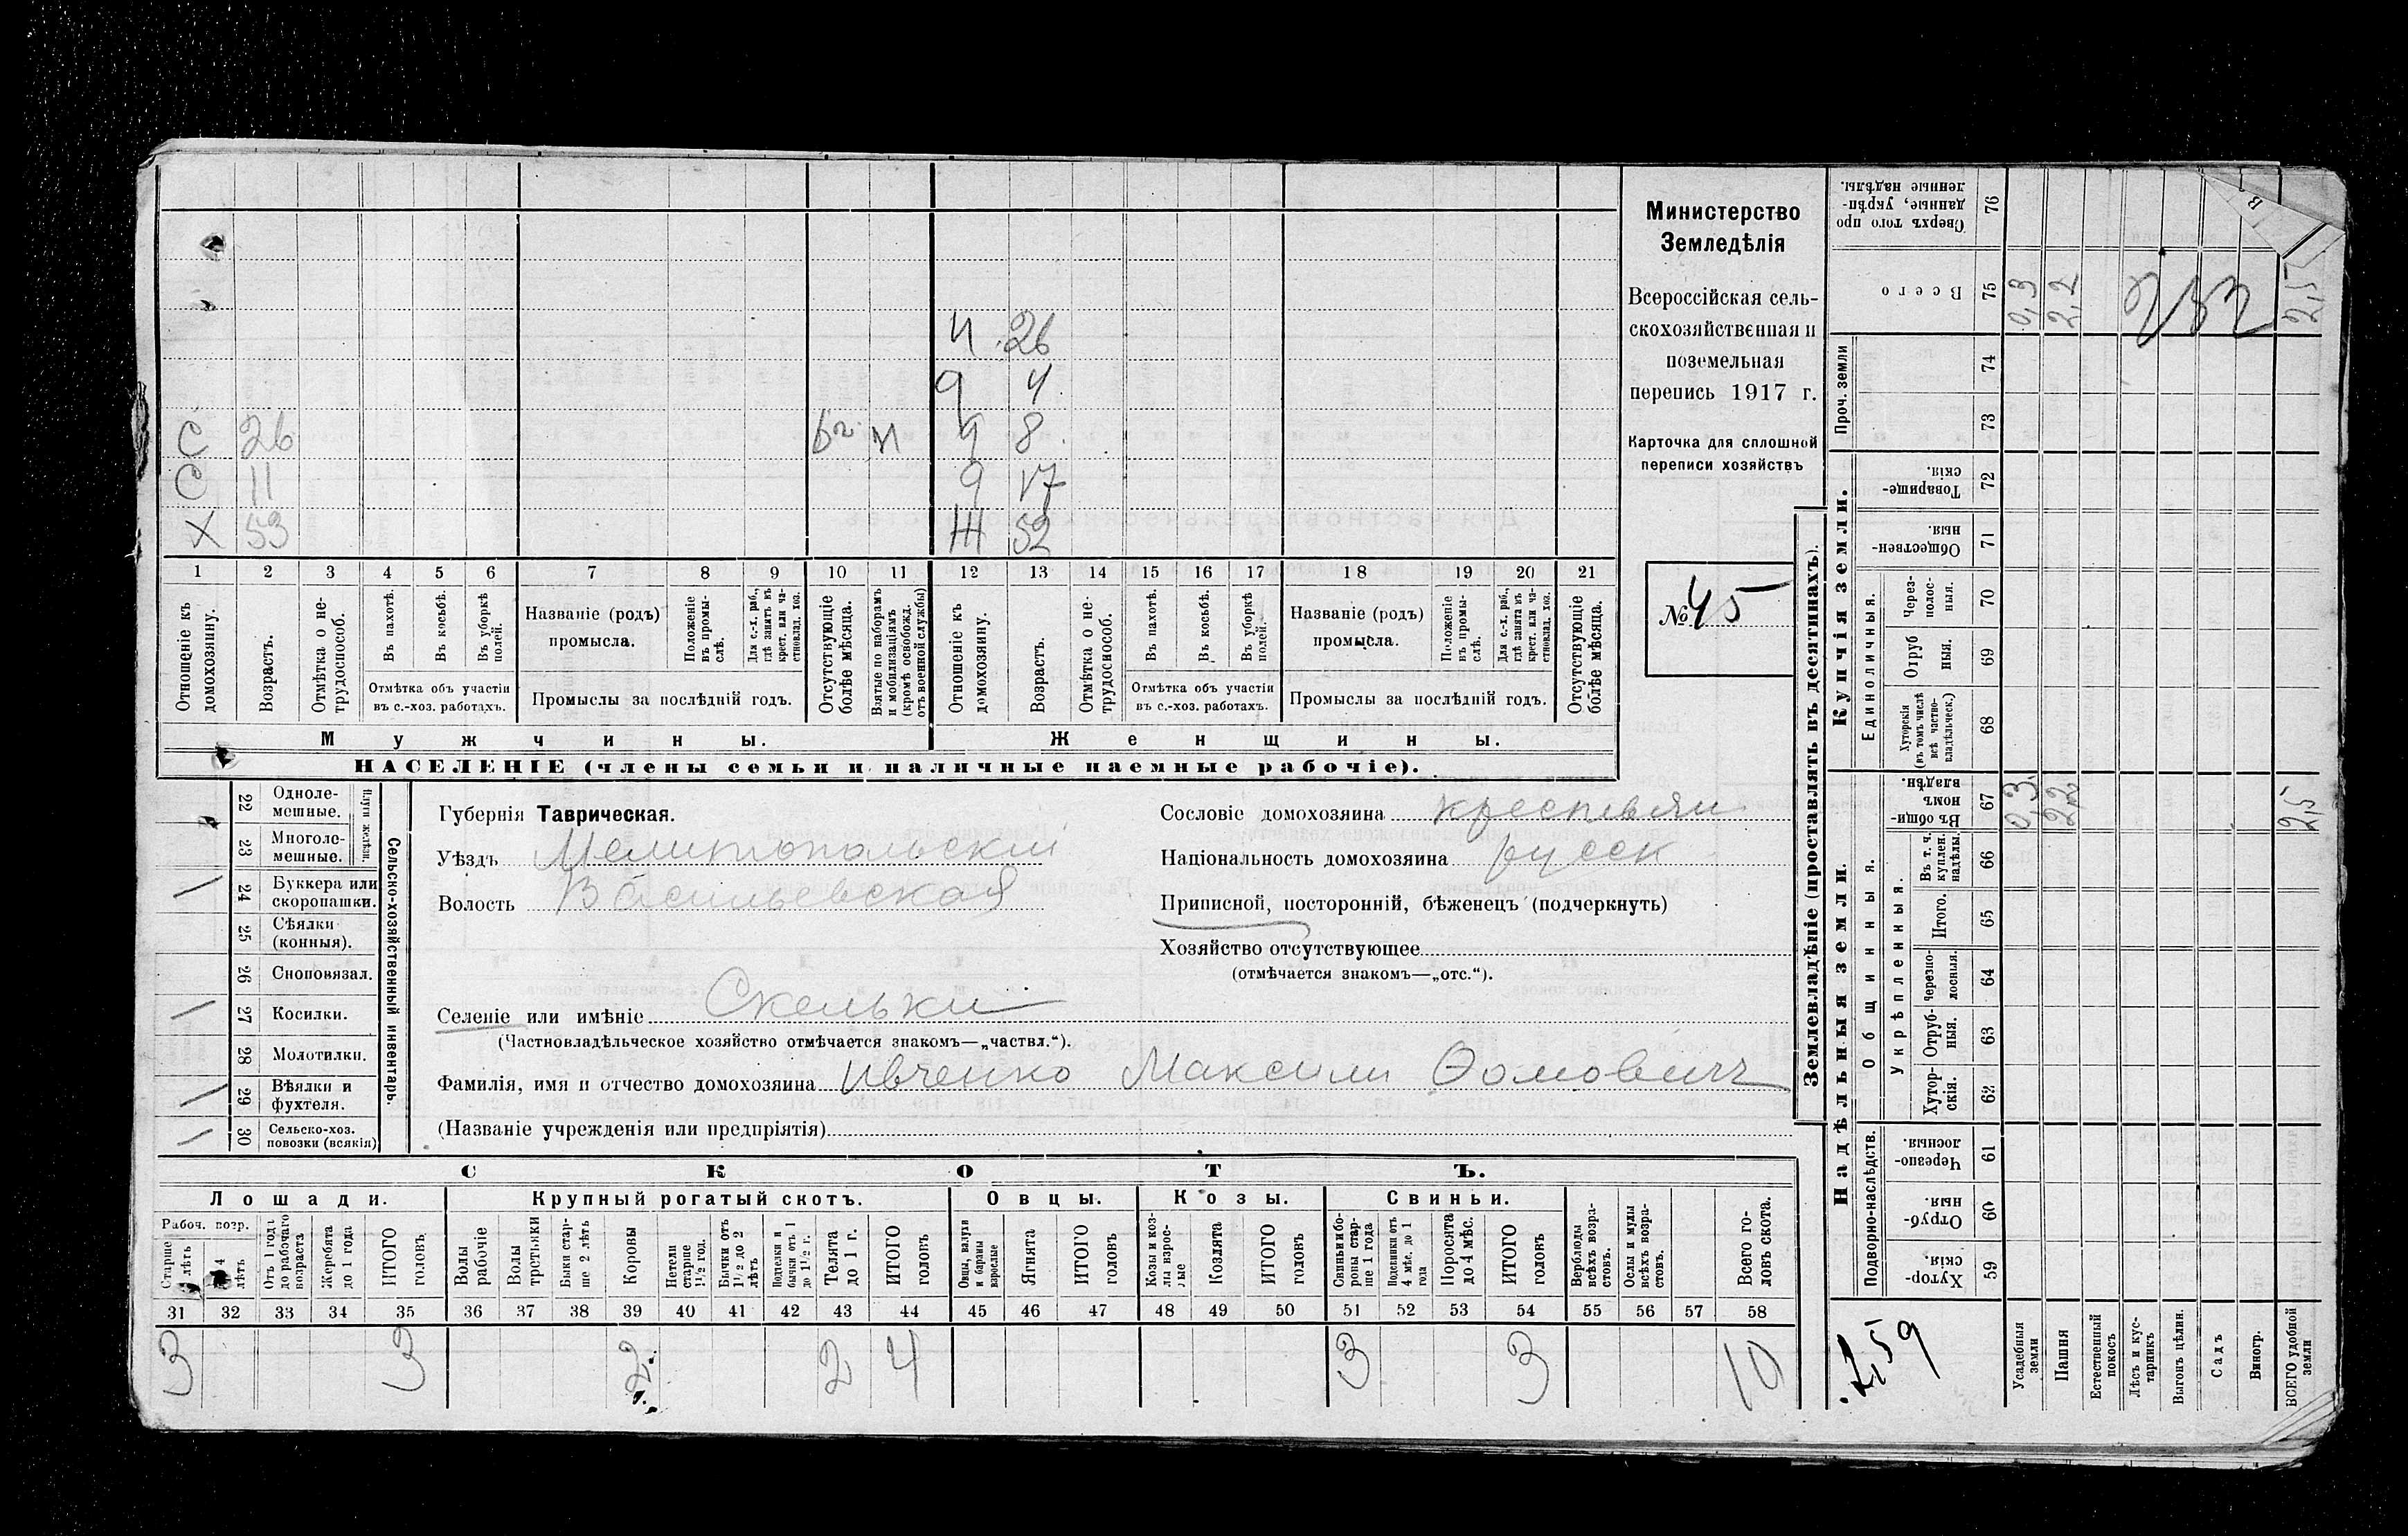 Министерство
Земледѣлія
Всероссійская сель-
скохозяйственная и
поземельная
перепись 1917 г.
Карточка для сплошной
переписи хозяйствъ
№ 45
Ч 26
9 4
С 26 н 9 8
С 11 9 17
Х 53 Ж 52
1 2 3 4 5 6 7 8 9 10 11 12 13 14 15 16 17 18 19 20 21
Отношеніе къ домохозяину.
Возрастъ.
Отмѣтка о не-трудоспособ.
Въ пахотѣ.
Въ косьбѣ.
Въ уборкѣ полей.
Отмѣтка объ участіи
въ с.-хоз. работахъ.
Названіе (родъ)
промысла.
Положеніе въ промы-слѣ.
Для с.-х. раб., гдѣ занятъ въ крест. или ча-стновлад. хоз.
Промыслы за послѣдній годъ.
Отсутствующіе болѣе мѣсяца.
Взятые по наборамъ и мобилизаціямъ (кромѣ освобожд. отъ военной службы)
Отношеніе къ домохозяину.
Возрастъ.
Отмѣтка о не-трудоспособ.
Въ пахотѣ.
Въ косьбѣ.
Въ уборкѣ полей.
Отмѣтка объ участіи
въ с.-хоз. работахъ.
Названіе (родъ)
промысла.
Положеніе въ промы-слѣ.
Для с.-х. раб., гдѣ занята въ крест. или ча-стновлад. хоз.
Промыслы за послѣдній годъ.
Отсутствующіе болѣе мѣсяца.
Мужчины.
Женщины.
НАСЕЛЕНІЕ (члены семьи и наличные наемные рабочіе).
Сельско-хозяйственный инвентарь.
Плуги желѣзн.
22 Одноле-мешные.
23 Многоле-мешные.
/ 24 Буккера или скоропашки.
25 Сѣялки (конныя).
26 Сноповязал.
/ 27 Косилки.
28 Молотилки.
/ 29 Вѣялки и фухтеля.
/ 30 Сельско-хоз. повозки (всякія)
Губернія Таврическая.
Уѣздъ Мелитопольскій
Волость Васильевская
Сословіе домохозяина крестьян
Національность домохозяина русск
Приписной, посторонній, бѣженецъ (подчеркнуть)
Хозяйство отсутствующее
(отмѣчается знакомъ—„отс.“).
Селеніе или имѣніе Скельки
(Частновладѣльческое хозяйство отмѣчается знакомъ—„частвл.“).
Фамилія, имя и отчество домохозяина Ивченко Максим Ѳомович
(Названіе учрежденія или предпріятія)
СКОТЪ.
Лошади.
Крупный рогатый скотъ.
Овцы.
Козы.
Свиньи.
Рабоч. возр.
Старше лѣтъ
4 лѣтъ
Отъ 1 года до рабочаго возраста
Жеребята до 1 года
ИТОГО головъ
Волы рабочіе
Волы третьяки
Быки стар-ше 2 лѣтъ
Коровы
Нетели старше 1½ год.
Бычки отъ 1½ до 2 лѣтъ
Подтелки и бычки отъ 1 до 1½ г.
Телята до 1 г.
ИТОГО головъ
Овцы, валухи и бараны взрослые
Ягнята
ИТОГО головъ
Козы и коз-лы взрос-лые
Козлята
ИТОГО головъ
Свиньи и бо-ровы стар-ше 1 года
Подсвинки отъ 4 мѣс. до 1 года
Поросята до 4 мѣс.
ИТОГО головъ
Верблюды всѣхъ возра-стовъ.
Ослы и мулы всѣхъ возра-стовъ.
Всего го-ловъ скота.
31 32 33 34 35 36 37 38 39 40 41 42 43 44 45 46 47 48 49 50 51 52 53 54 55 56 57 58
3 3 2 2 4 3 3 10
Землевладѣніе (проставлять въ десятинахъ).
Купчія земли.
Надѣльныя земли.
Проч. земли
Единоличныя.
Общинныя.
Укрѣпленныя.
Подворно-наслѣдств.
Сверхъ того про данные, укрѣп-ленные надѣлы. 76
Всего 75 0,3 2,2 2,5
74
73
Товарище-скія. 72
Обществен-ныя. 71
Через-полос-ныя. 70
Отруб ныя. 69
Хуторскія (въ томъ числѣ всѣ частно-владѣльческ.) 68
Въ общи-номъ владѣн. 67 0,3 2,2 2,5
Въ т. ч. куплен. надѣлы. 66
Итого. 65
Черезпо-лосныя. 64
Отруб-ныя. 63
Хутор-скія. 62
Черезпо-лосныя. 61
Отруб-ныя. 60
Хутор-скія. 59
Усадебныя земли
Пашня
Естественный покосъ
Лѣсъ и кус-тарникъ
Выгонъ цѣлин.
Садъ
Виногр.
ВСЕГО удобной земли